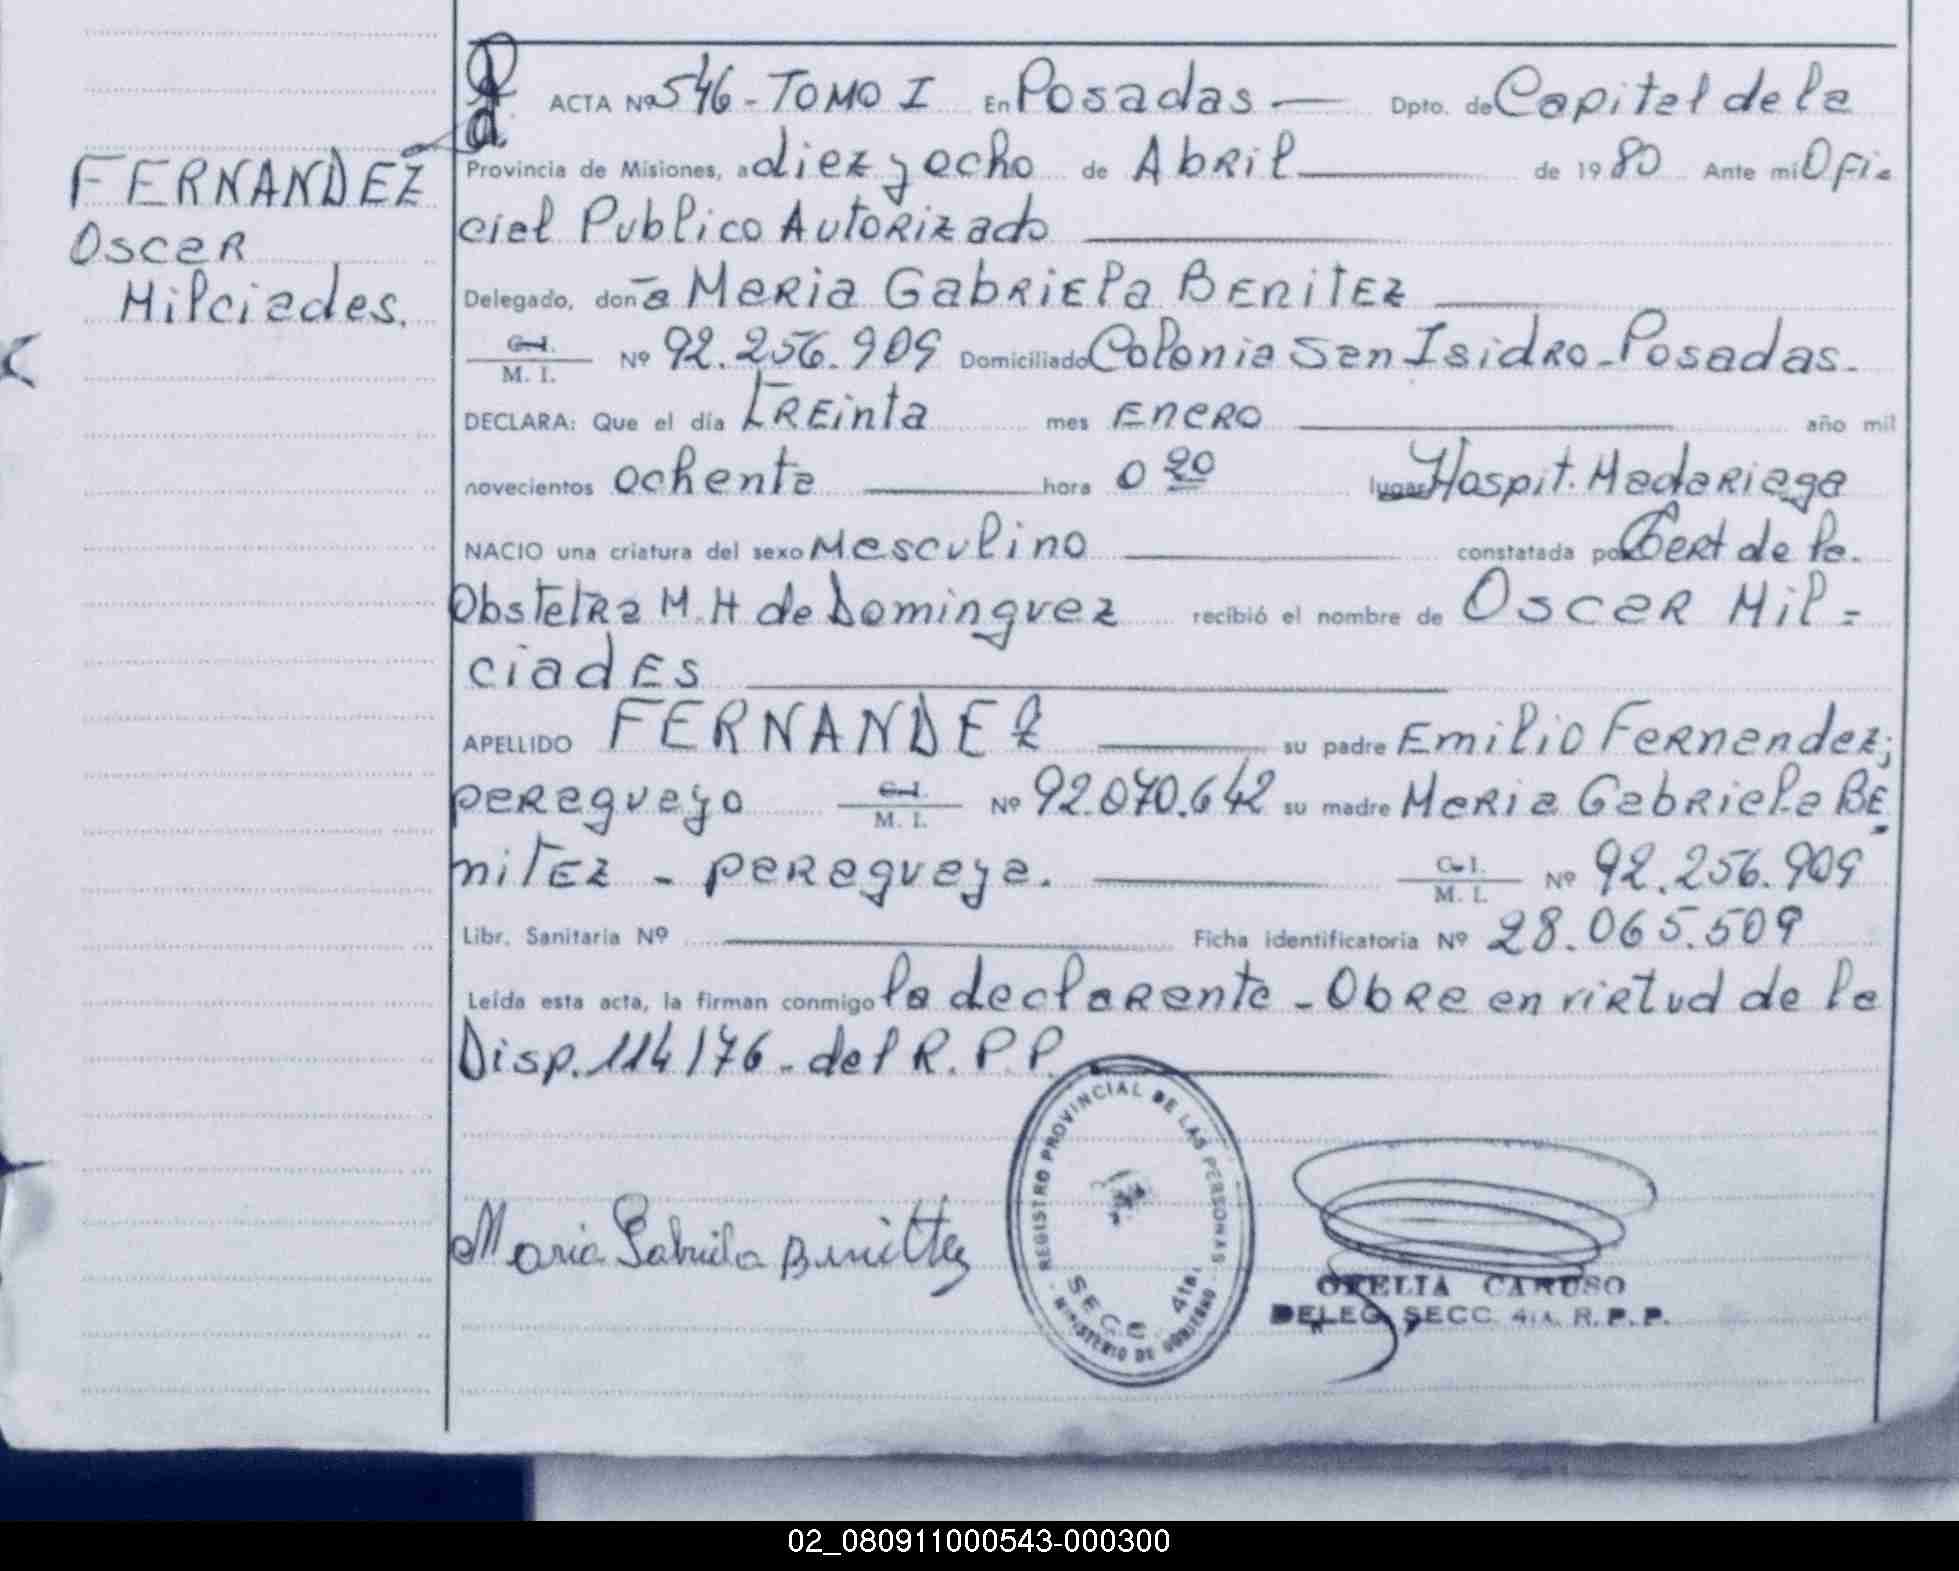 FERNANDEZ
Oscar
Milciades.
ACTA Nº 546 - TOMO I En Posadas — Dpto. de Capital de la
Provincia de Misiones, a diez y ocho de Abril — de 1980 Ante mi Ofi-
cial Publico Autorizado —
Delegado, don a Maria Gabriela BENITEZ —
C.I. / M. I. Nº 92.256.909 Domiciliado Colonia San Isidro - Posadas.
DECLARA: Que el día treinta mes Enero — año mil
novecientos ochenta — hora 0 20 lugar Hospit. Madariaga
NACIO una criatura del sexo Masculino — constatada por Cert de la.
Obstetra M.H de Dominguez recibió el nombre de Oscar Mil=
ciades —
APELLIDO FERNANDEZ — su padre Emilio Fernandez;
paraguayo C.I. / M. I. Nº 92.070.642 su madre Maria Gabriela BE
nitez - paraguaya. — C.I. / M. I. Nº 92.256.909
Libr. Sanitaria Nº — Ficha identificatoria Nº 28.065.509
Leída esta acta, la firman conmigo la declarante - Obre en virtud de la
Disp. 114/76 - del R.P.P. —
REGISTRO PROVINCIAL DE LAS PERSONAS
SECC 4ta.
MINISTERIO DE GOBIERNO
Maria Gabriela Benittez
OFELIA CARUSO
DELEG. SECC. 4ta. R.P.P.
02_080911000543-000300